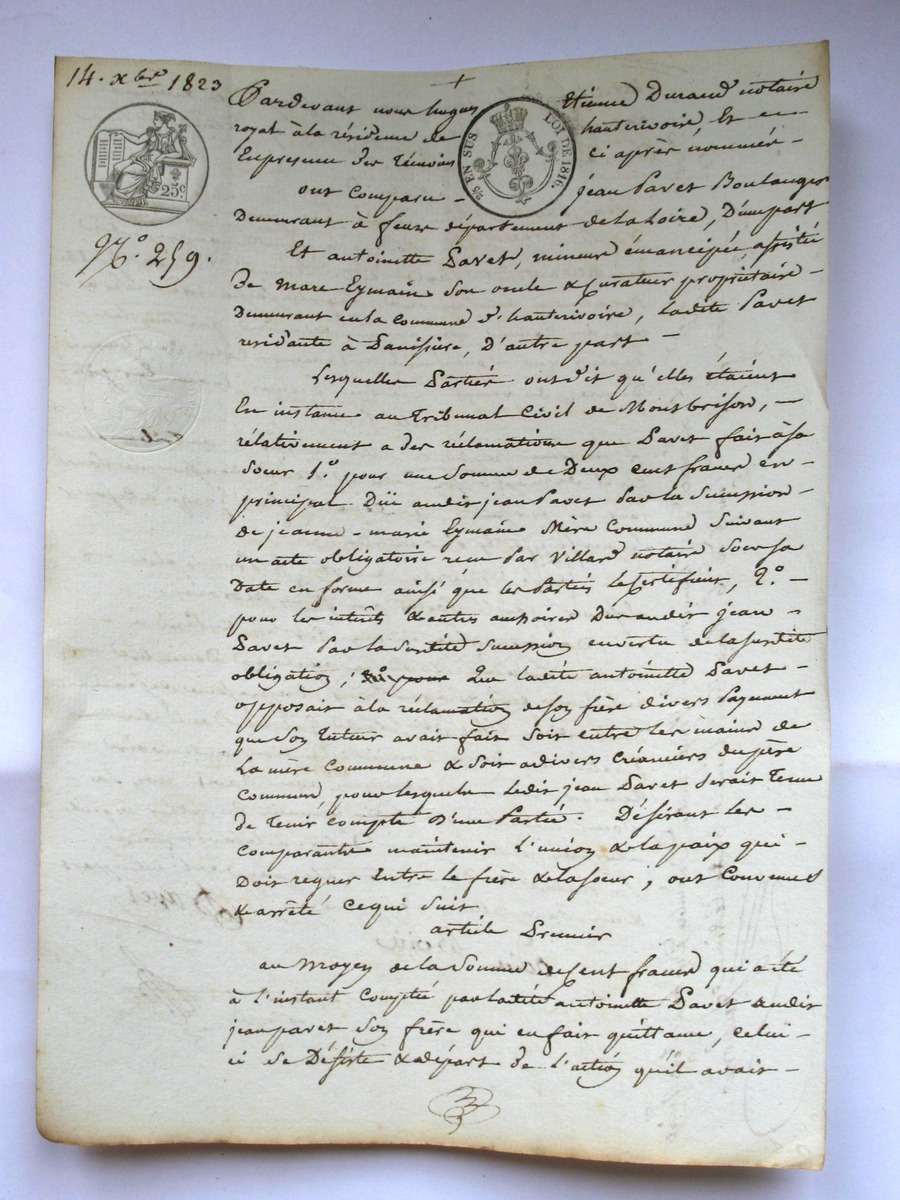 14. xbre 1823
25c
N.o 259.
Pardevant nous hugues Etienne Durand notaire
EN SUS LOI DE 1816.
royal à la résidence de hauterivoire, Et en
En presence des témoins ci après nommés -
ont comparu - jean Pavet Boulanger
Demeurant à feurs département de la Loire, D'une part
Et antoinette Pavet, mineure émancipée, assistée
De Marc Eymain son oncle & Curateur propriétaire -
Demeurant en la Commune d'hauterivoire, ladite Pavet
residante à Panissière, D'autre part -
Lesquelles Parties ont dit qu'elles étaient
En instance au Tribunal Civil de Montbrison, -
rélativement a des réclamations que Pavet fait à sa
Soeur 1.o pour une Somme de Deux cent francs en -
principal Dûe audit jean Pavet Par la Succession -
de jeanne - marie Eymain Mère Commune Suivant
un acte obligatoire recu Par Villard notaire sous sa
Date en forme ainsi que les Parties le Certifient, 2.o -
pour les intérêts & autres accessoires Dus audit jean -
Pavet Par la Susdite Succession en vertu de la Susdite
obligation, Que ladite antoinette Pavet -
opposait à la réclamation de son frère divers Payement
que Son Tuteur avait fait Soit entre les mains de
La mère Commune & Soit a divers Créanciers du pere
Commun, pour lesquels ledit jean Pavet Serait Tenu
de Tenir compte D'une Partie. Désirant les -
Comparants maintenir l'union & la paix qui -
Doit regner Entre le frère & la Soeur, ont Convenus
& arrêté Ce qui Suit
article Premier
au Moyen de la Somme de Cent francs qui a été
à l'instant Comptée par ladite antoinette Pavet audit
jean pavet Son frère qui en fait quittance, Celui -
ci se Désiste & départ de l'action qu'il avait -